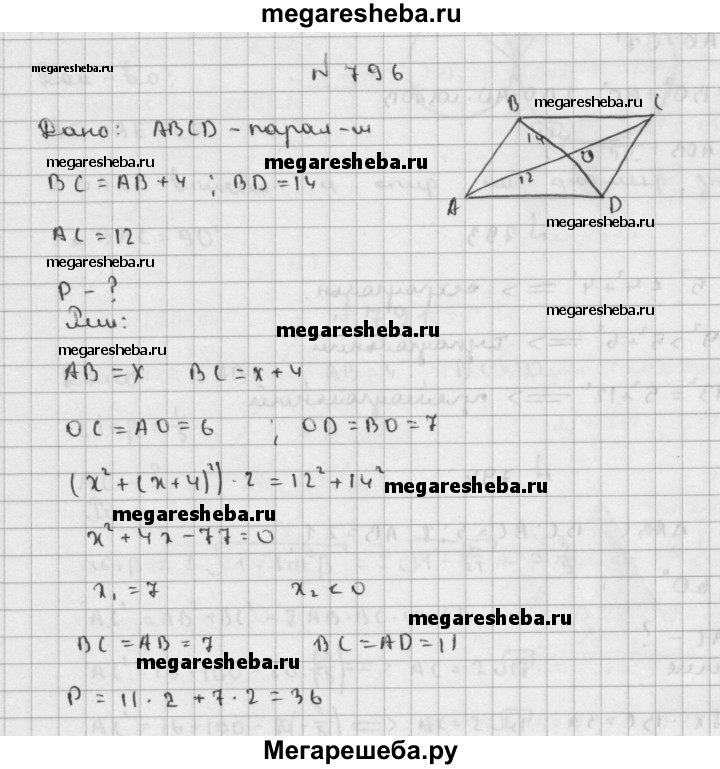 megaresheba.ru
megaresheba.ru
N 796
Дано: ABCD - парал-м
B megaresheba.ru C
14
O
12
A D
megaresheba.ru megaresheba.ru
BC = AB + 4 ; BD = 14
megaresheba.ru
AC = 12
megaresheba.ru
P - ?
Реш:
megaresheba.ru
megaresheba.ru
AB = x BC = x + 4
OC = AO = 6 ; OD = BO = 7
(x² + (x + 4)²) · 2 = 12² + 14²
megaresheba.ru
megaresheba.ru
x² + 4x - 77 = 0
x₁ = 7 x₂ < 0
megaresheba.ru
BC = AB = 7 BC = AD = 11
megaresheba.ru
P = 11 · 2 + 7 · 2 = 36
Мегарешеба.ру